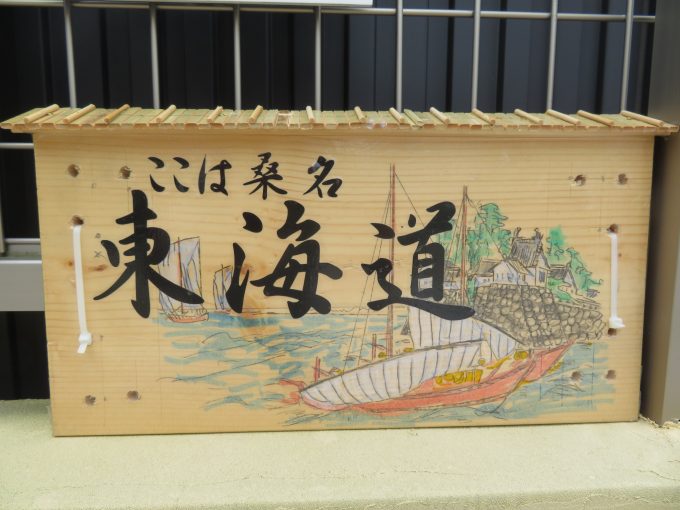 ここは桑名
東海道